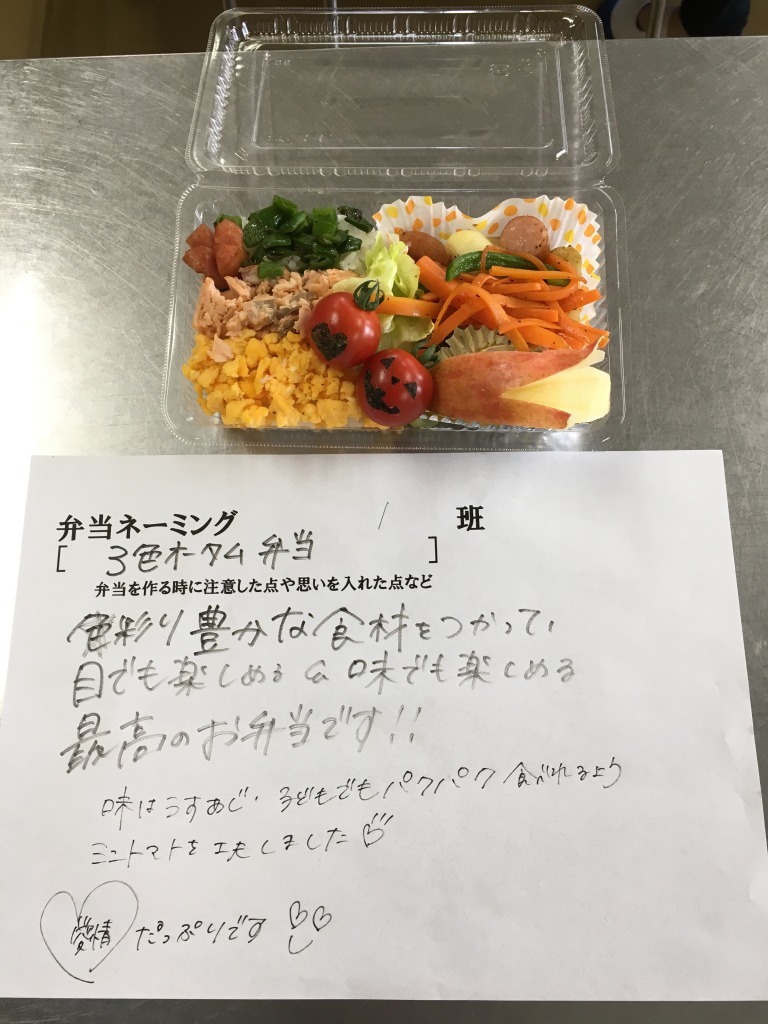 弁当ネーミング 1 班
[ 3色オータム弁当 ]
弁当を作る時に注意した点や思いを入れた点など
色彩り豊かな食材をつかって、
目でも楽しめる & 味でも楽しめる
最高のお弁当です!!
味はうすあじ、子どもでもパクパク食べれるよう
ミニトマトを工夫しました♡
愛情 たっぷりです